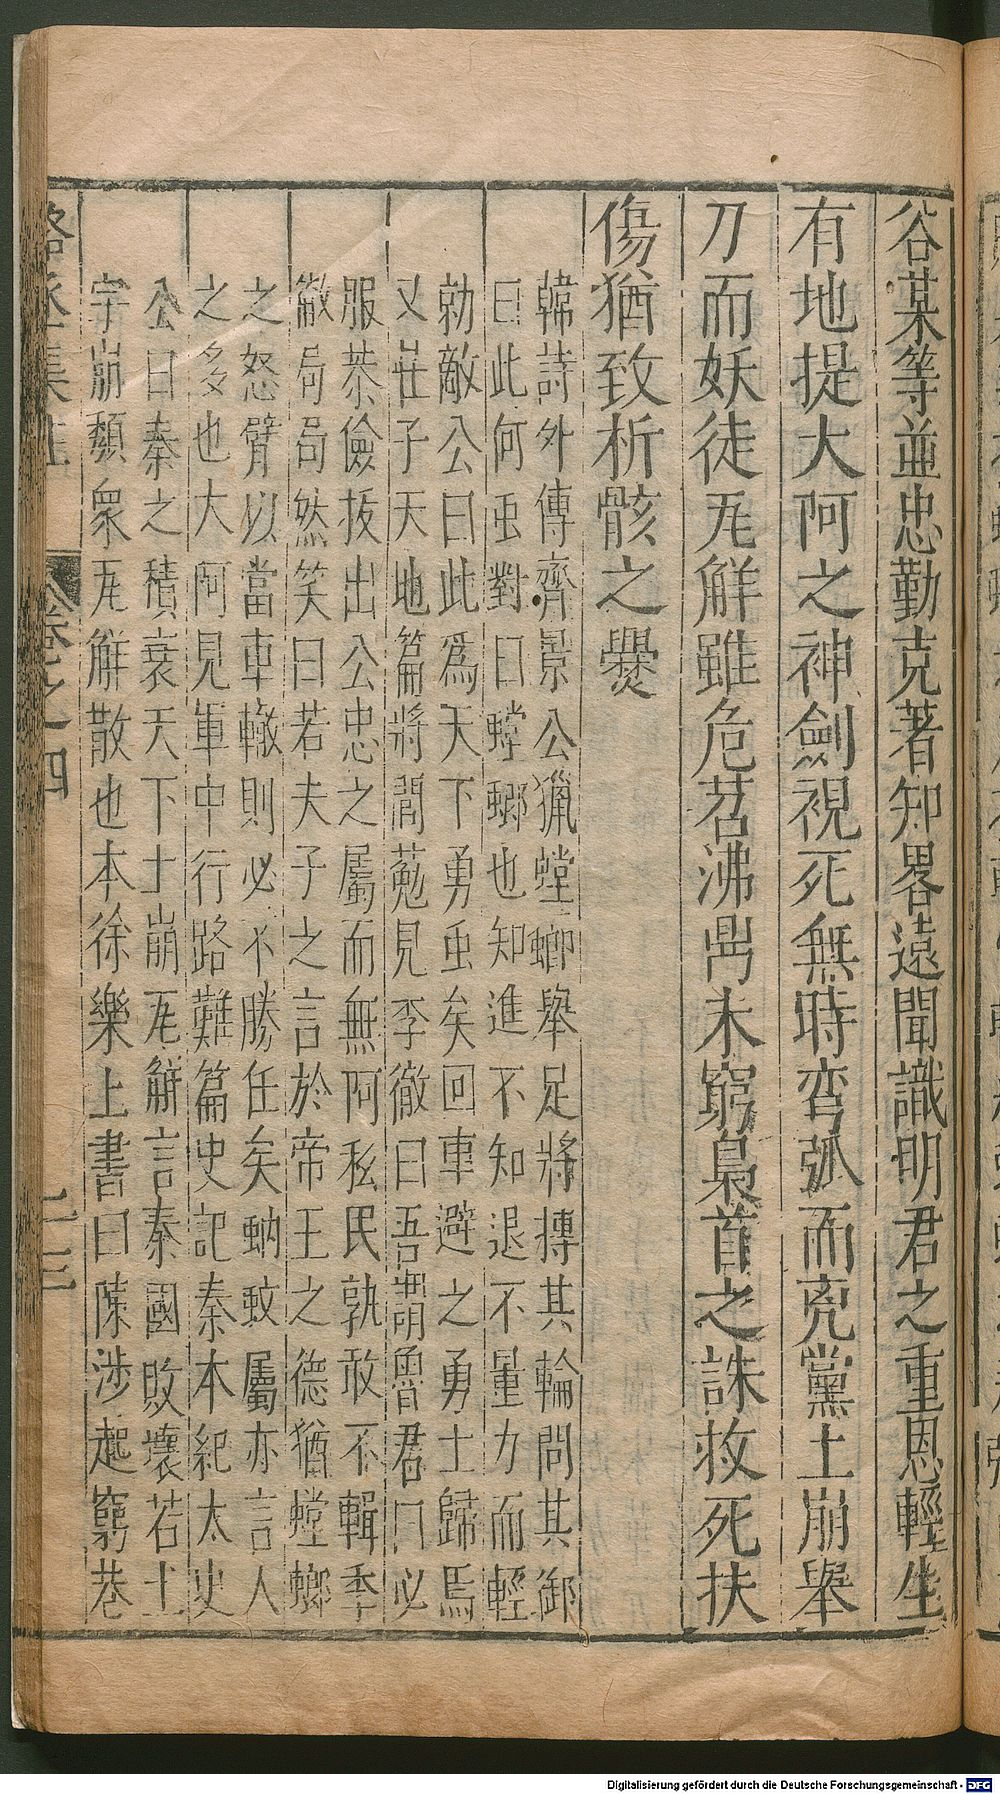 谷某等並忠勤克著知畧遠聞識明君之重恩輕生
有地提大阿之神劍視死無時弯弧而兇黨土崩舉
刀而妖徒瓦解雖危茗沸鬵未窮梟首之誅救死扶
傷猶致析骸之爨
韓詩外傳齊景公獵螳螂舉足將摶其輪問其御
曰此何虫對曰螳螂也知進不知退不量力而輕
勍敵公曰此爲天下勇虫矣回車避之勇士歸焉
又莊子天地篇將閭葂見李徹曰吾謂魯君曰必
服恭儉拔出公忠之屬而無阿私民孰敢不輯季
徹局局然笑曰若夫子之言於帝王之德猶螳螂
之怒臂以當車轍則必不勝任矣蚋蚊屬亦言人
之多也大阿見軍中行路難篇史記秦本紀太史
公曰秦之積衰天下土崩瓦解言秦國敗壞若土
宇崩頽衆瓦解散也本徐樂上書曰陳涉起窮巷
駱丞集註 卷之四 二十三
Digitalisierung gefördert durch die Deutsche Forschungsgemeinschaft - DFG